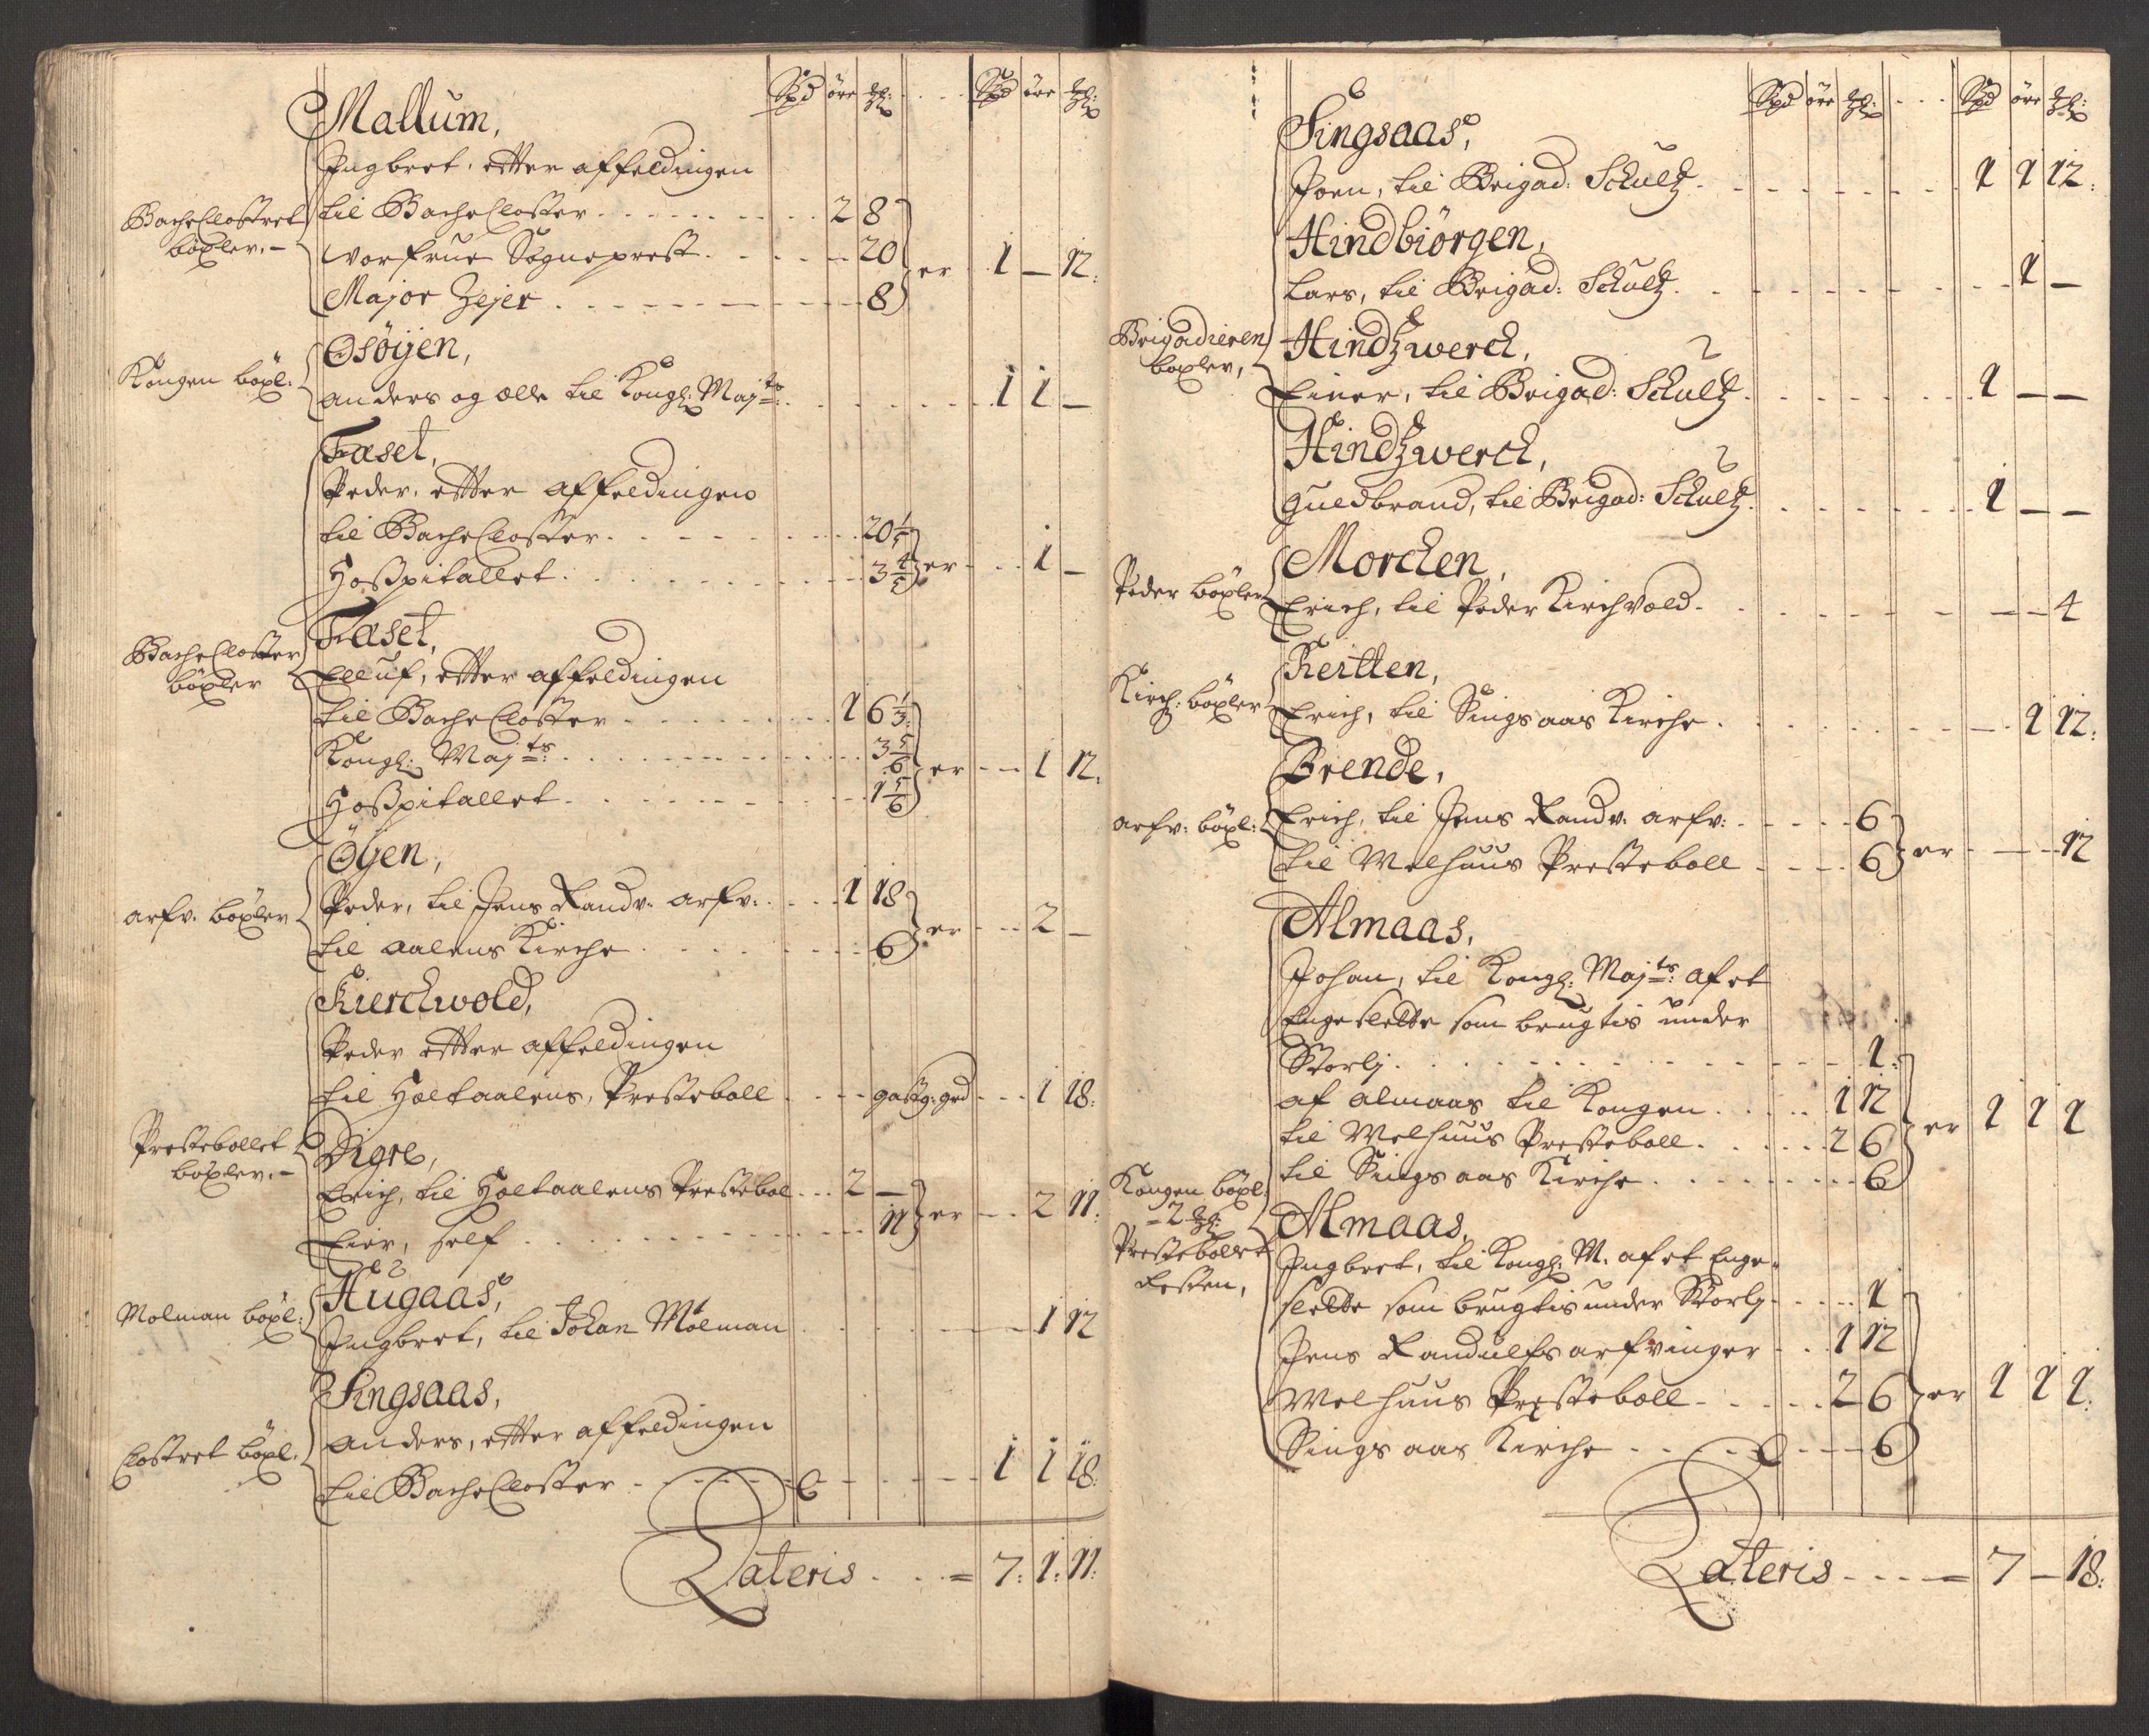 Spd öre mk: . . . Spd öre mk:
Mallum,
Ingbret, etter affeldingen
BacheClostret böxler. –
til BacheCloster . . . . . . 2 8
Vorfrue Sogneprest . . . . 20 er . . 1 – 12.
Major Zejer . . . . . . 8
Osöyen,
Kongen böxl:
anders og olle til Kongl: Majts: . . . . 1 1 –
Faset,
Peder, etter affeldingen
til BacheCloster . . . . . . 20 1/5
Hoßpitallet . . . . . . 3 4/5 er . . . 1 –
Faset,
BacheCloster böxler
Elluf, etter affeldingen
til BacheCloster . . . . . . 1 6 1/3
Kongl: Majts: . . . . . . 3 5/6 er . . . 1 12.
Hoßpitallet . . . . . . 1 5/6
Öyen,
arfv: böxler
Peder, til Jens Randv: arfv: . . . 1 18
til Aalens Kirche . . . . . 6 er . . . 2 –
Kierchwold,
Peder etter affeldingen
til Holtaalens, Presteboll . . . gastg: grd . . . 1 18.
Prestebollet böxler. –
Digre,
Erich, til Holtaalens Prestebol . . . 2 –
Eier, self . . . . . . 11 er . . . 2 11.
Hugaas,
Molman böxl:
Ingbret, til Johan Mølman . . . . 1 12
Singsaas,
Clostret böxl.
anders, etter affeldingen
til BacheCloster . . . . . . 1 1 18.
Lateris . . . = 7: 1: 11:
Spd öre mk: . . . Spd öre mk:
Singsaas,
Joen, til Brigad: Schultz . . . . 1 1 12.
Hindbiörgen,
Lars, til Brigad: Schultz . . . . 1 –
Brigadieren böxler,
Hindzwerch,
Einer, til Brigad: Schultz . . . . 1 – –
Hindzwerch,
Guldbrand, til Brigad: Schultz . . . . 1 – –
Morchen,
Peder böxler
Erich, til Peder Kirchvold . . . . – – 4
Kertlen,
Kirch: böxler
Erich, til Singsaas Kirche . . . . – 1 12.
Brende,
arfv: böxl:
Erich, til Jens Randv: arfv: . . . . 6
til Melhuus Presteboll . . . . 6 er . – – 12
Almaas,
Johan, til Kongl: Majts: af et
Engeslette som brugtis under
Storlj . . . . . . 1.
af almaas til Kongen . . . . 1 12
til Melhuus Presteboll . . . . 2 6 er 1 1 1
til Singsaas Kirche . . . . . 6
Kongen böxl: = 2 mk: Prestebollet Resten,
Almaas,
Ingbret, til Kongl: M. af et Enge-
slette som brugtis under Storlj . . . . 1
Jens Randulfs arfvinger . . . 1 12
Melhuus Presteboll . . . . 2 6 er 1 1 1.
Singsaas Kirche . . . . . 6
Lateris . . . = 7 – 18.